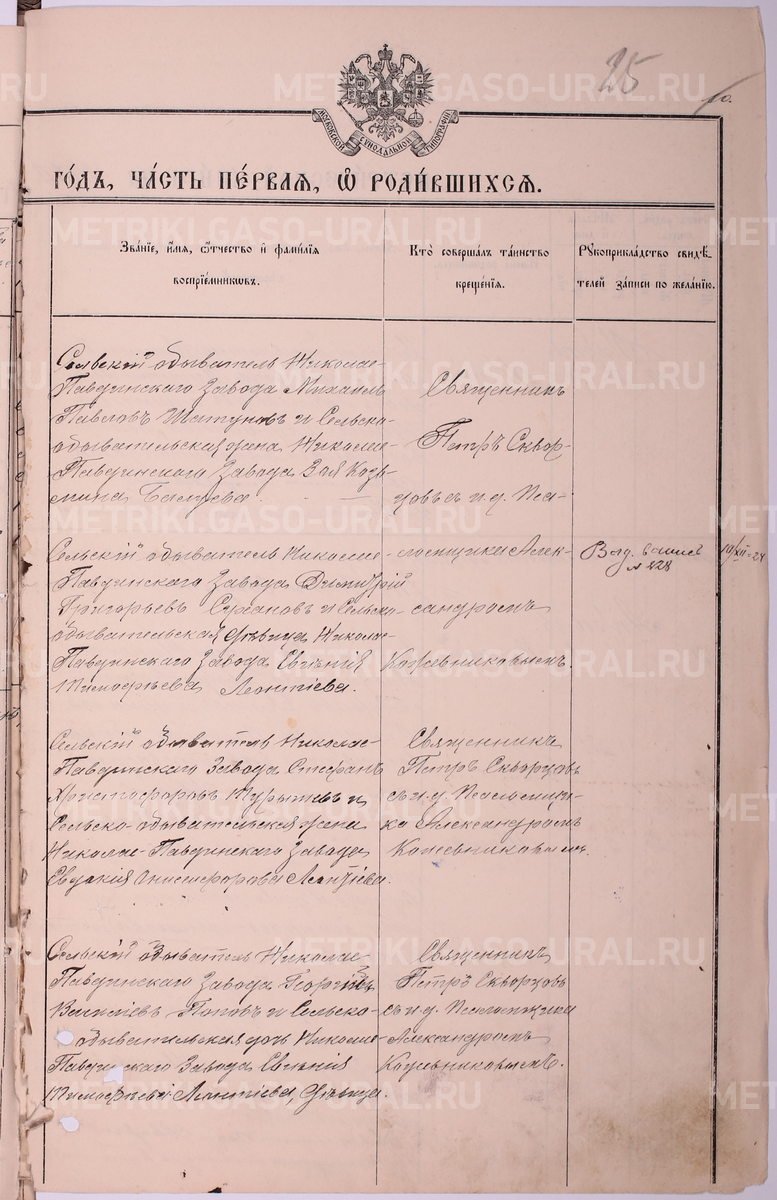 25
МОСКОВСКОЙ СѴНОДАЛЬНОЙ ТИПОГРАФІИ
ГО́ДЪ, ЧА́СТЬ ПЕ́РВАЯ, Ѽ РОДИ́ВШИХСЯ.
Зва́нїе, и҆́мя, ѻ҆́тчество и҆ фами́лїя
воспрїе́мникѡвъ.
Кто̀ соверша́лъ та́инство
креще́нїя.
Рꙋкоприкла́дство свидѣ́-
телей за́писи по жела́нїю.
Сельскій обыватель Николае-
Павдинскаго Завода Михаилъ
Павловъ Шатуновъ и Сельско-
обывательская жена Николае-
Павдинскаго Завода Зоя Козь-
мина
Священникъ
Петръ Сквор-
цовъ съ и. д. Пса-
ломщика Алек-
сандромъ
Кожевниковымъ.
Сельскій обыватель Николае-
Павдинскаго Завода Димитрій
Григорьевъ и Сельско-
обывательская дѣвица Николае-
Павдинскаго Завода Евгенія
Тимофѣева Леонтіева.
Выд.
№ 828
19/XII-24
Сельскій обыватель Николае-
Павдинскаго Завода Стефанъ
Христофоровъ и
Сельско-обывательская жена
Николае-Павдинскаго Завода
Евдокія Онисифорова Леонтіева.
Священникъ
Петръ Скворцовъ
съ и. д. Псаломщи-
ка Александромъ
Кожевниковымъ.
Сельскій обыватель Николае-
Павдинскаго Завода Георгій
Поповъ и Сельско-
обывательская дочь Николае-
Павдинскаго Завода Евгенія
Тимофѣева Леонтіева, дѣвица.
Священникъ
Петръ Скворцовъ
съ и. д. Псаломщика
Александромъ
Кожевниковымъ.
METRIKI.GASO-URAL.RU